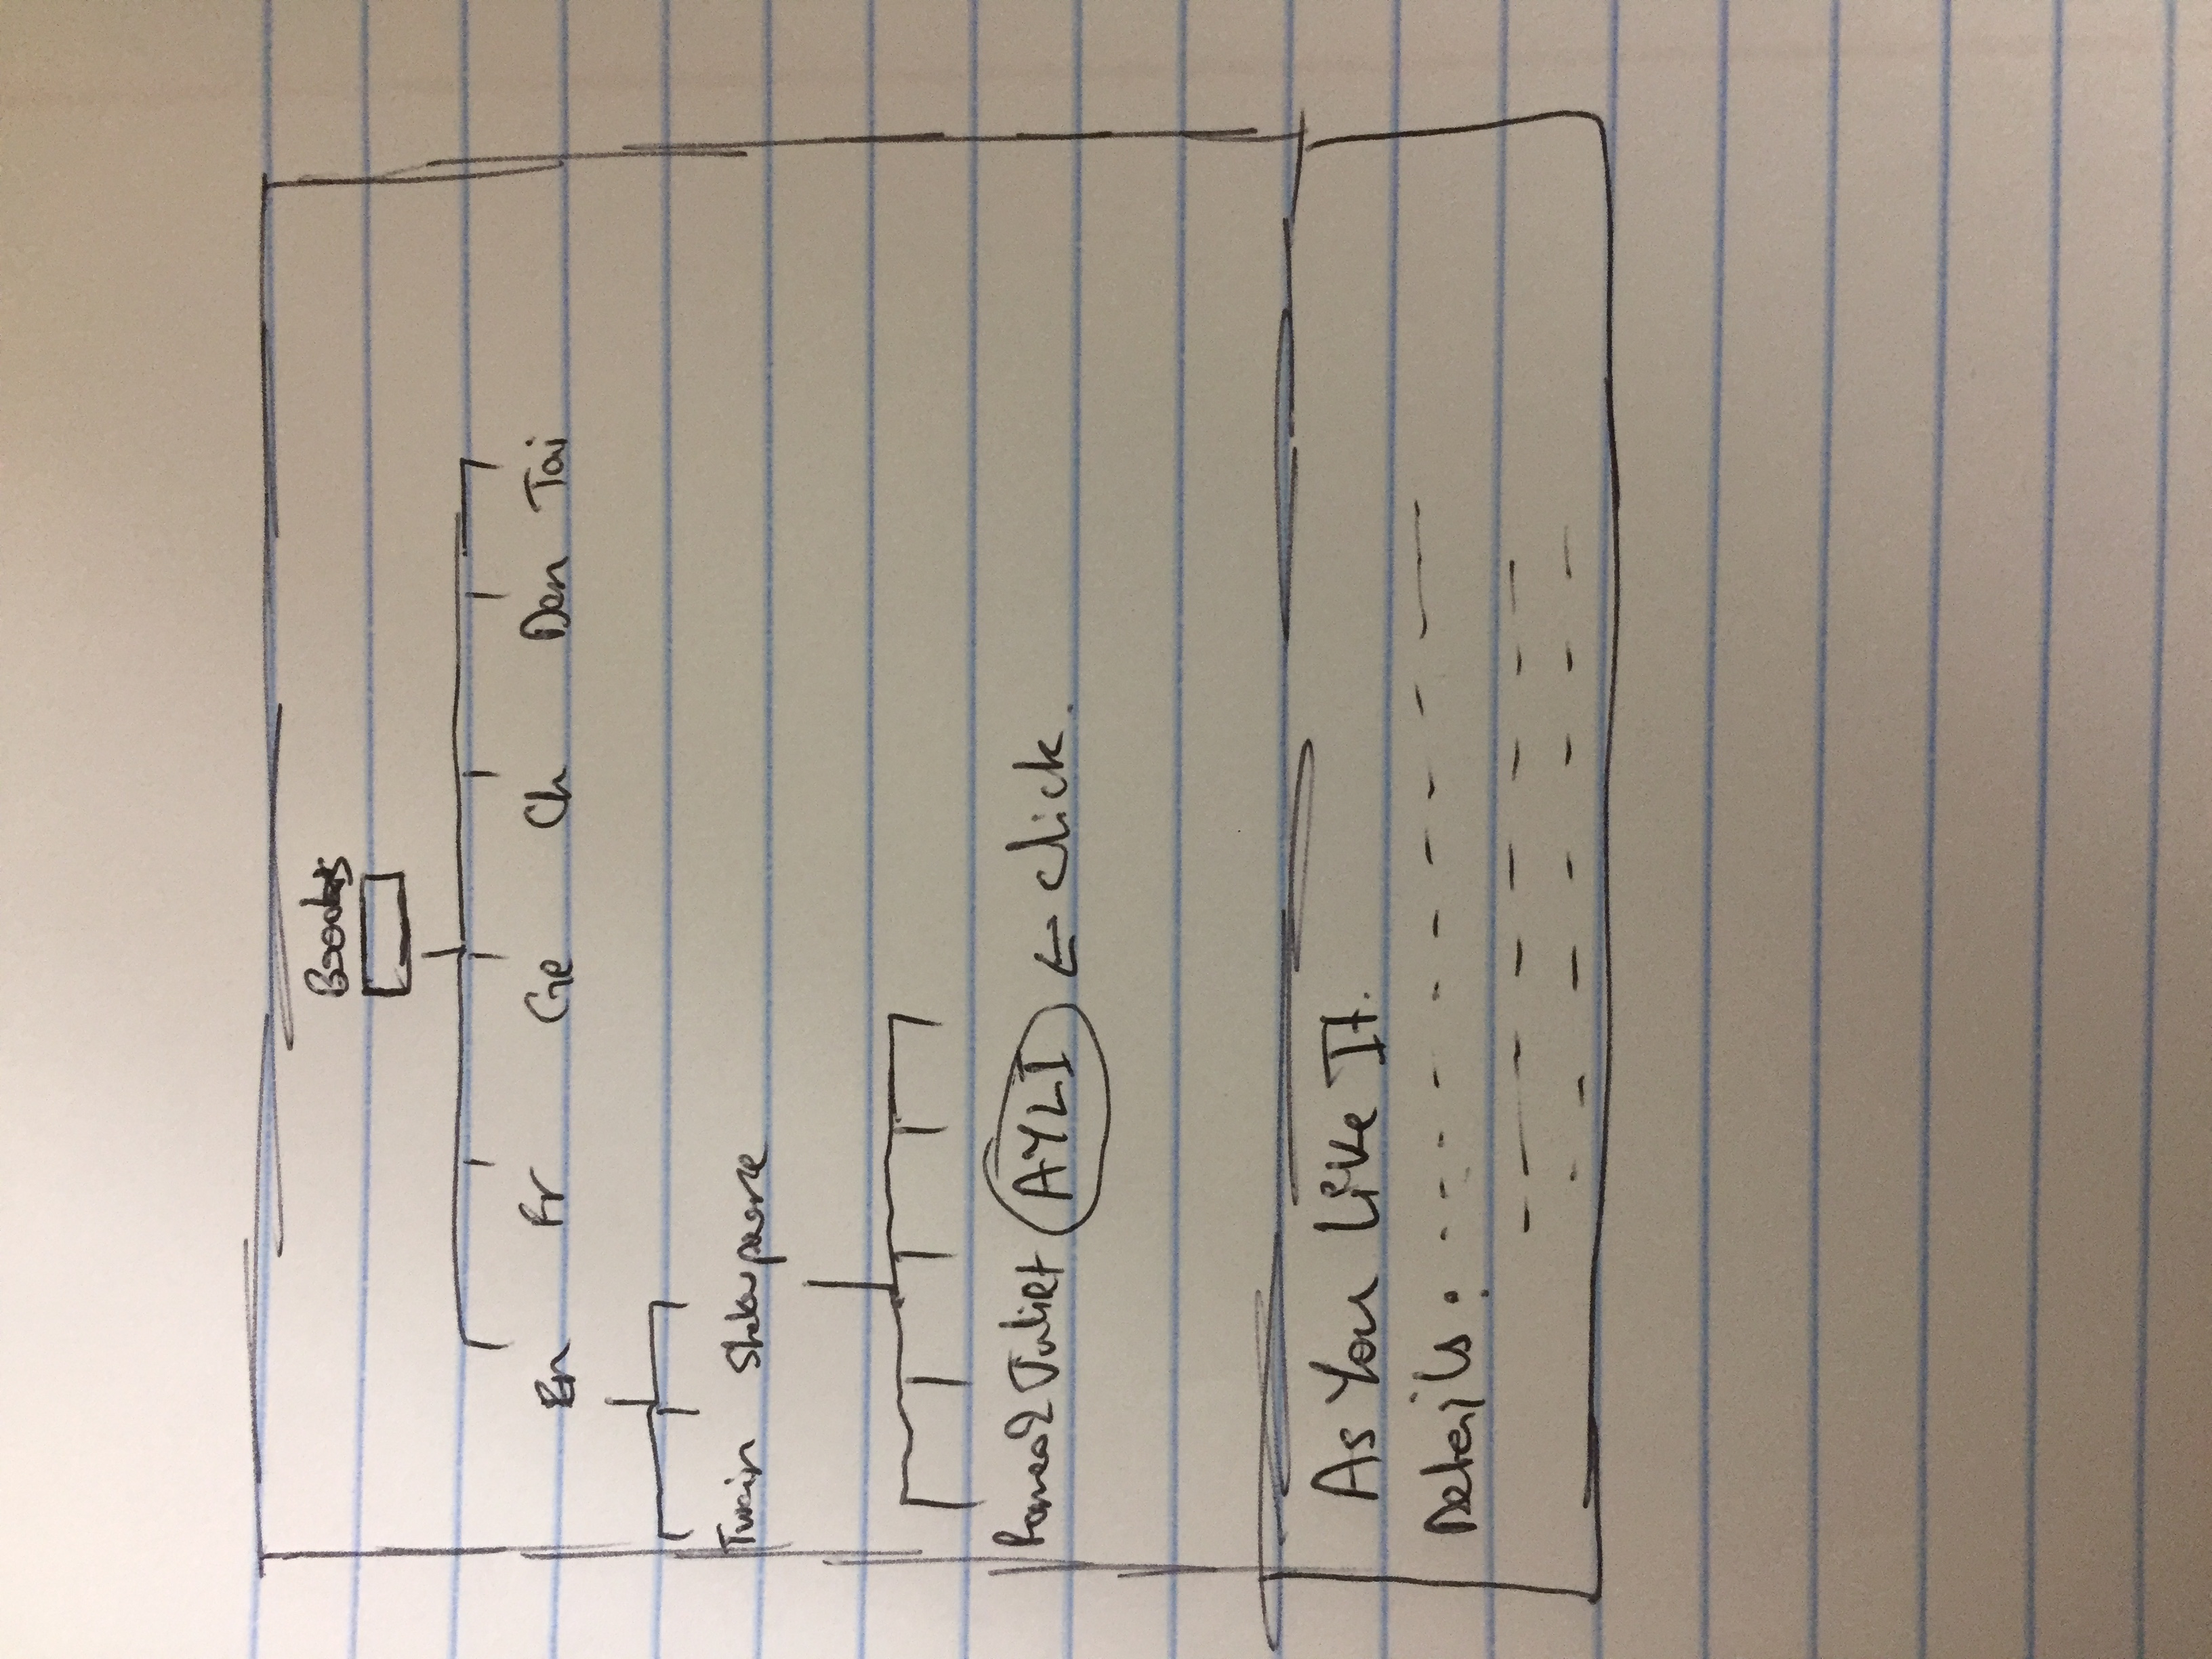 Books
En Fr Ge Ch Den Tai
Twain Shakespeare
Romeo & Juliet AYLI ← click.
As You Like It.
Details: